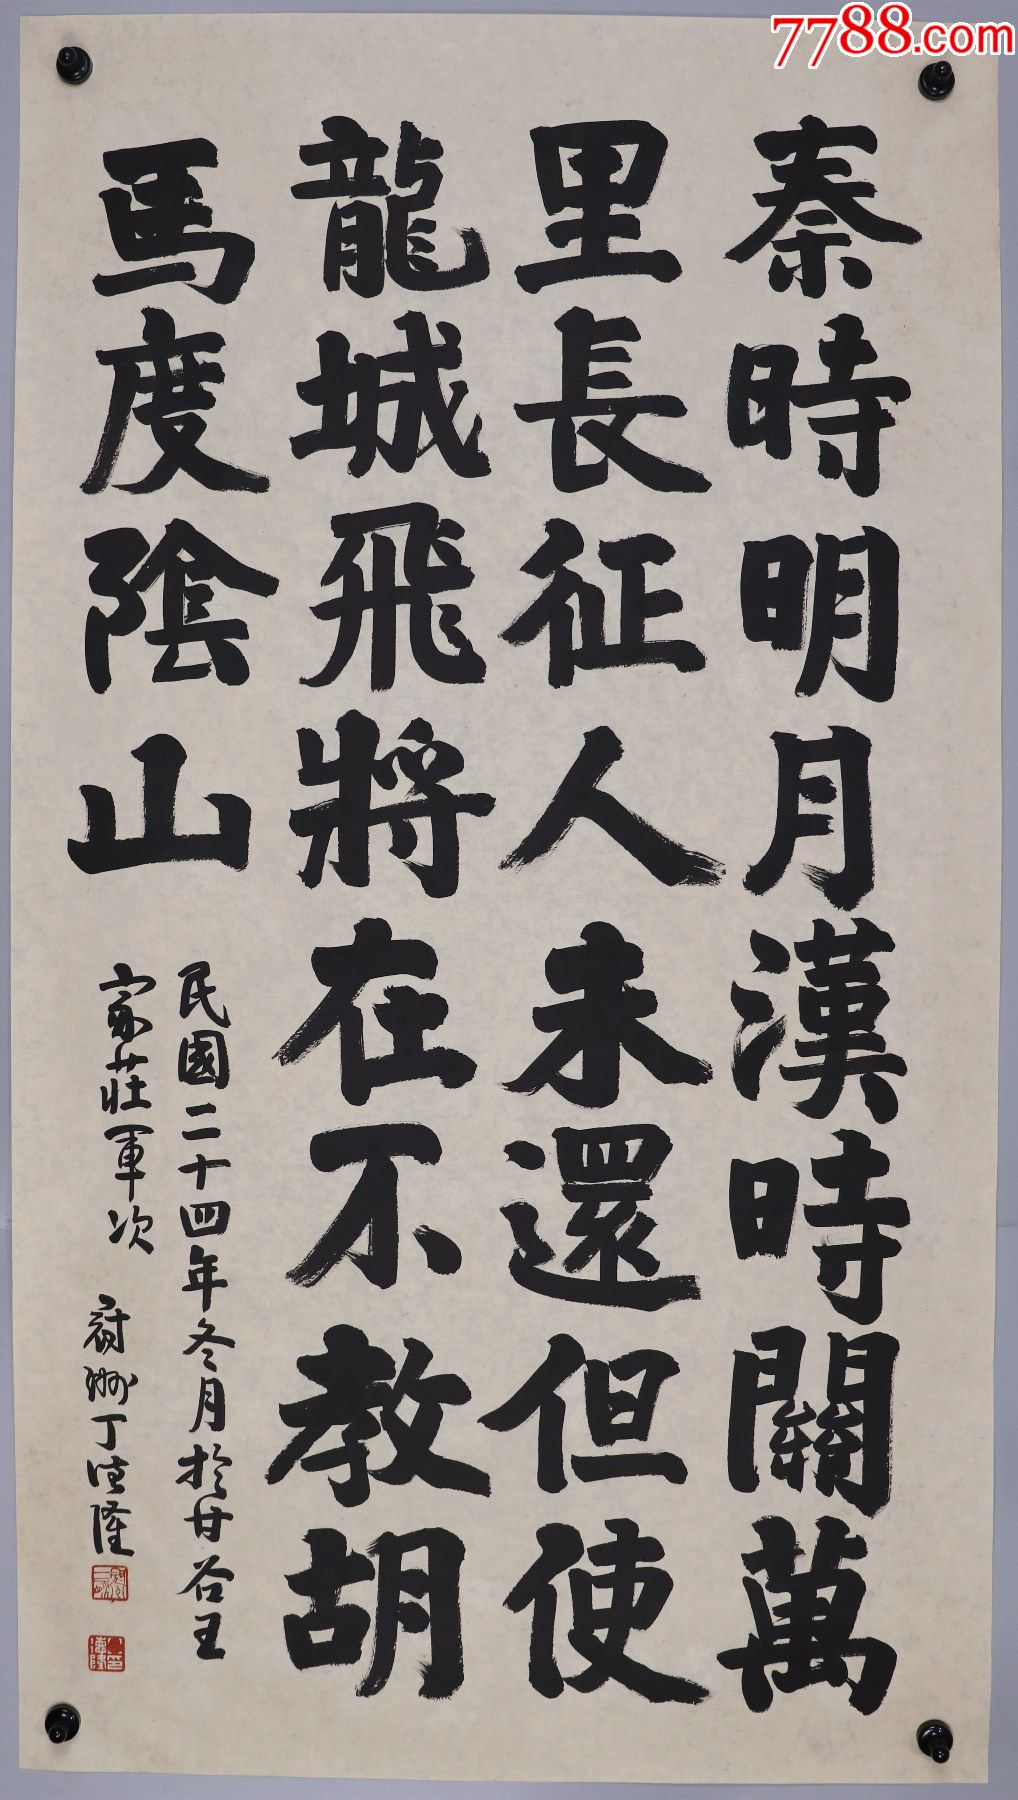 7788.com
秦時明月漢時關萬
里長征人未還但使
龍城飛將在不教胡
馬度陰山
民國二十四年冬月於甘谷王
家莊軍次 丁德隆